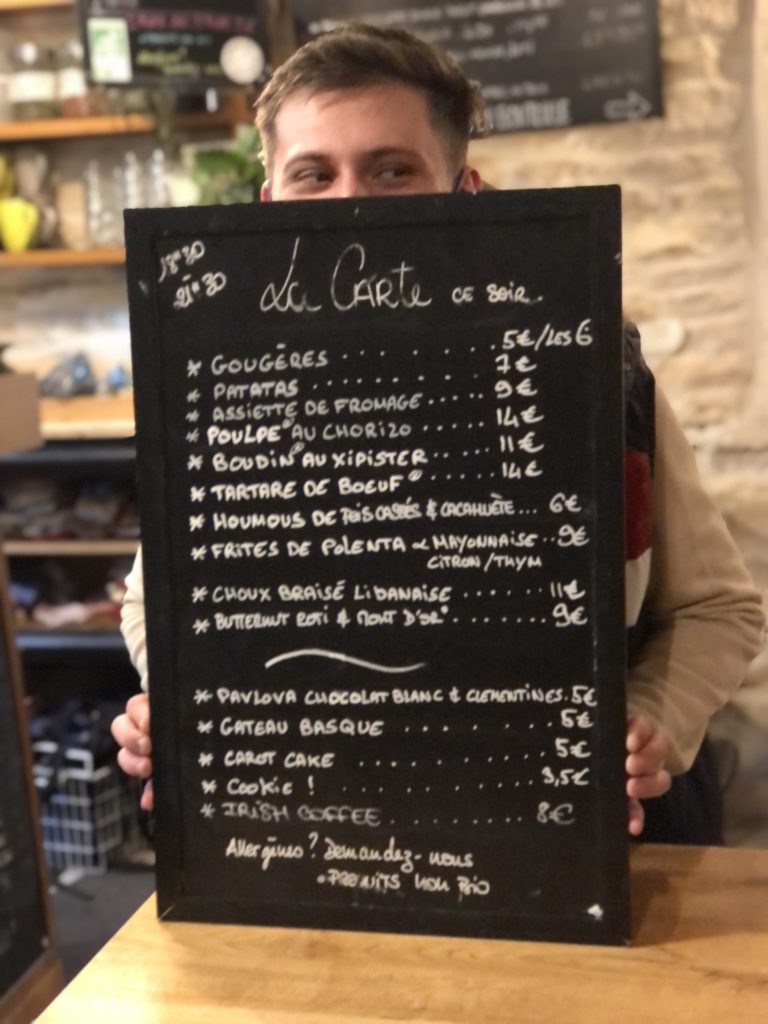 18h30
21h30
La Carte ce soir.
* GOUGÈRES . . . . . . . 5€/Les 6
* PATATAS . . . . . . . . 7€
* ASSIETTE DE FROMAGE . . . . . 9€
* POULPE° AU CHORIZO . . . . . 14€
* BOUDIN° AU XIPISTER . . . . . 11€
* TARTARE DE BOEUF° . . . . . . 14€
* HOUMOUS DE POIS CASSÉS & CACAHUÈTE... 6€
* FRITES DE POLENTA & MAYONNAISE .. 9€
CITRON/THYM
* CHOUX BRAISÉ LIBANAISE . . . . . . . 11€
* BUTTERNUT ROTI & MONT D'OR° . . . . . . . 9€
* PAVLOVA CHOCOLAT BLANC & CLEMENTINES . 5€
* GATEAU BASQUE . . . . . . . 5€
* CAROT CAKE . . . . . . . . . 5€
* Cookie ! . . . . . . . . . . 3,5€
* IRISH COFFEE . . . . . . . . 8€
Allergènes ? Demandez-nous
° PRODUITS non Bio